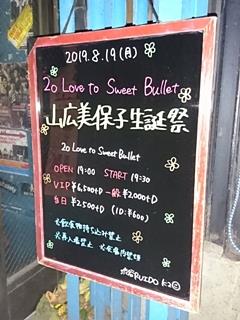 2019.8.19(月)
20 Love to Sweet Bullet
山広美保子生誕祭
20 Love to Sweet Bullet
OPEN 19:00 START 19:30
VIP ¥6,500+D 一般 ¥2,000+D
当日 ¥2,500+D (1D:¥600)
※飲食物持ち込み禁止
※再入場禁止
RUIDO K2